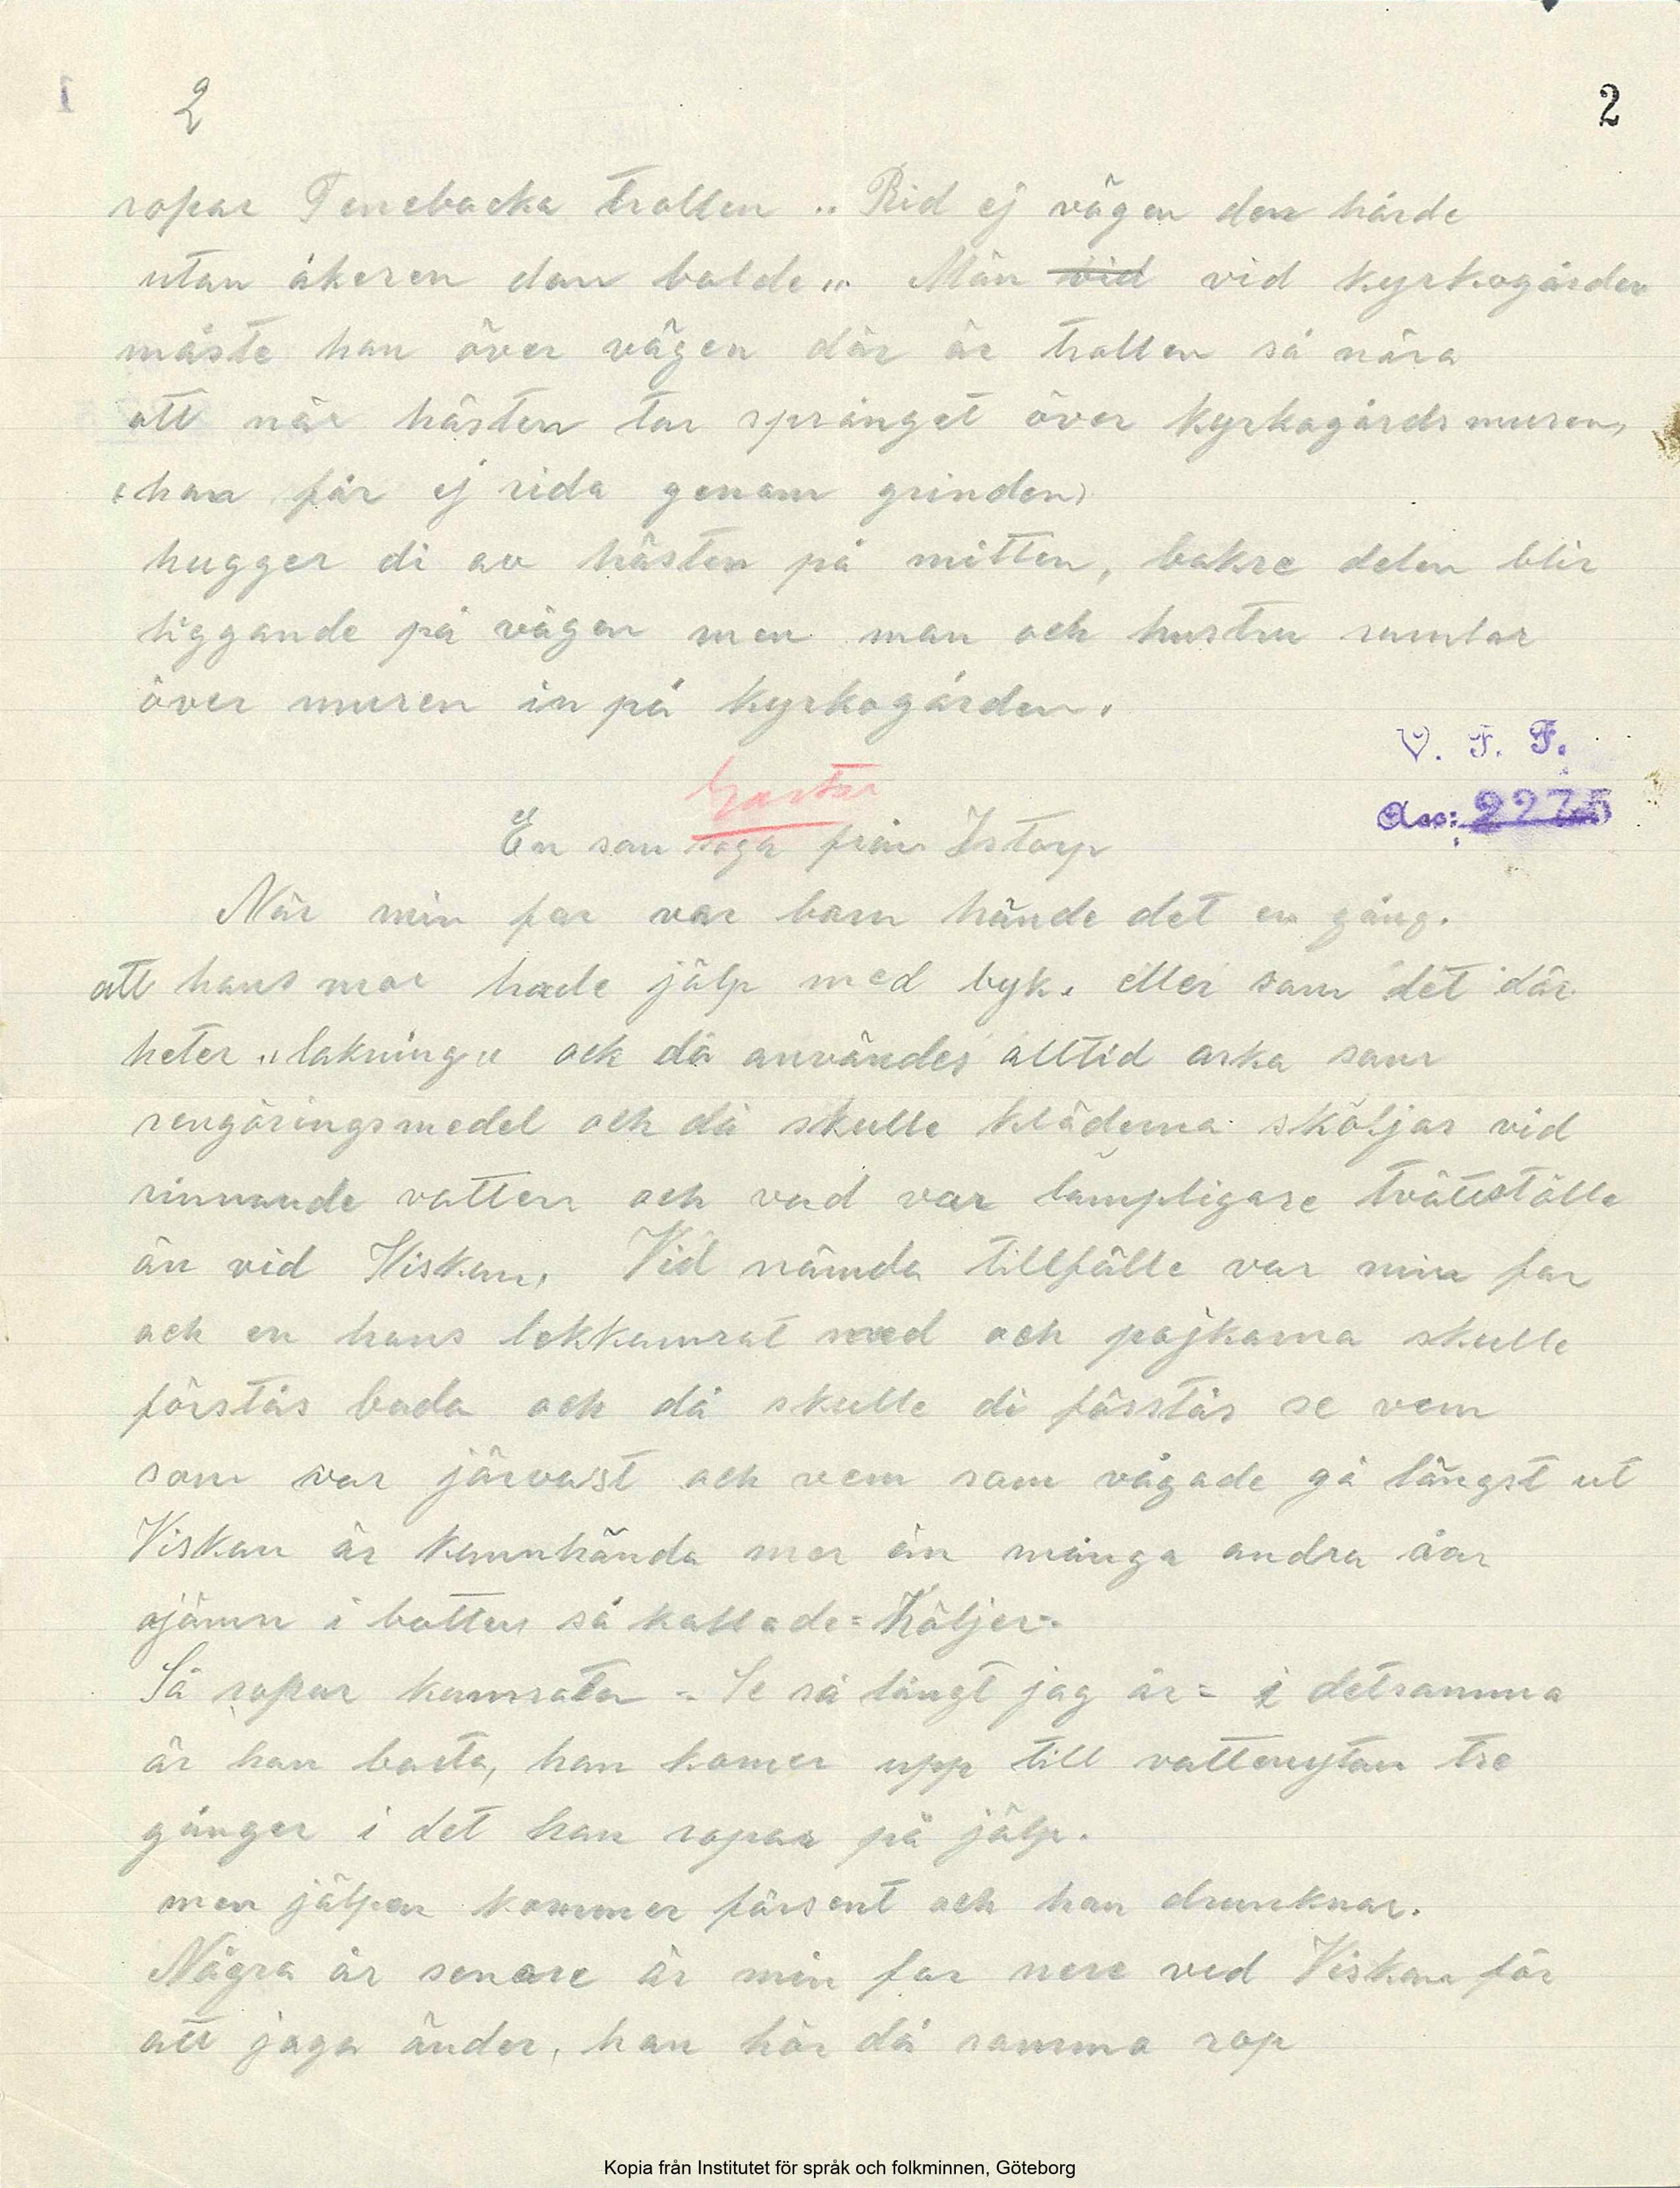 2
2
ropar Tenebacka trollen „ Rid ej vägen den hårde
utan åkeren dan bolde „ Män vid vid kyrkogården
måste han över vägen där är trollen så nära
att när hästen tar språnget över kyrkogårdsmuren,
(han får ej rida genom grinden)
hugger di av hästen på mitten, bakre delen blir
liggande på vägen men man och hustru ramlar
över muren in på kyrkogården.
V. F. F.
Acc: 2275
Gastar
En san saga från Istorp
När min far var barn hände det en gång.
att hans mor hade jälp med byk. eller som det där
heter „lakning„ och då användes alltid aska som
rengöringsmedel och då skulle kläderna sköljas vid
rinnande vatten och vad var lämpligare tvättställe
än vid Viskan. Vid nämda tillfälle var min far
och en hans lekkamrat med och pojkarna skulle
förstås bada och då skulle di förstås se vem
som var järvast och vem som vågade gå längst ut
Viskan är kannhända mer än många andra åar
ojämn i botten så kallade = Höljer =
Så ropar kamraten = Se så långt jag är = i detsamma
är han borta, han komer upp till vattenytan tre
gånger i det han ropar på jälp.
men jälpen kommer försent och han drunknar.
Några år senare är min far nere ved Viskan för
att jaga änder, han hör då samma rop
Kopia från Institutet för språk och folkminnen, Göteborg